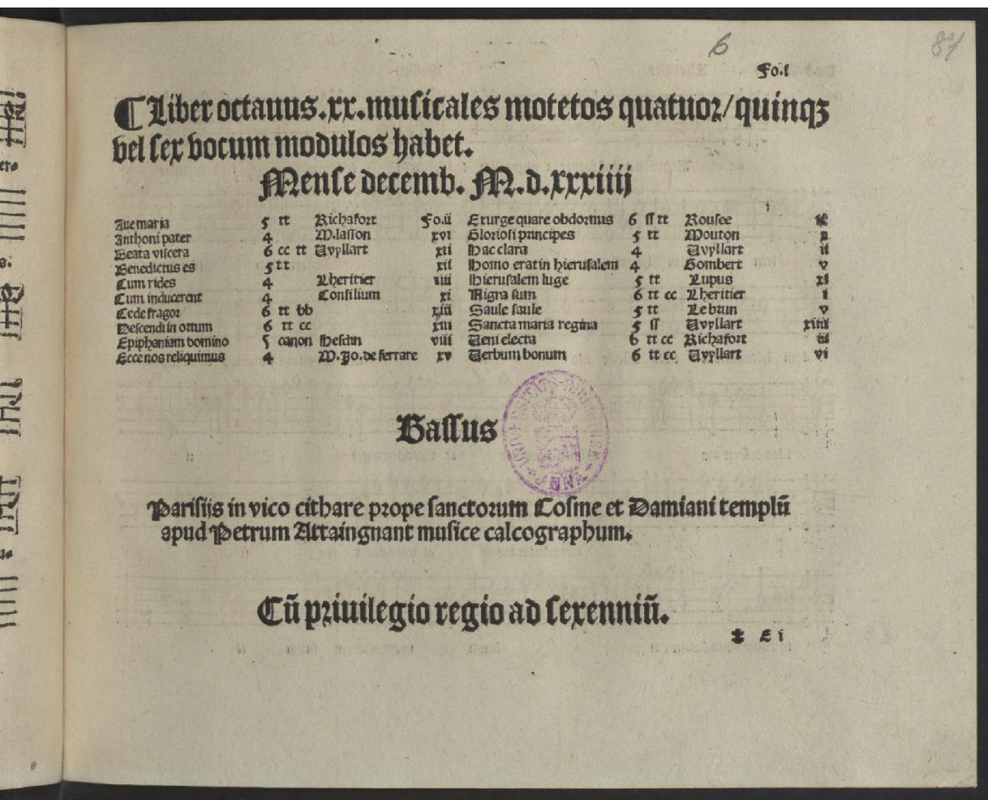 6
87
Fo.i
¶ Liber octauus.xx.musicales motetos quatuor/quinqꝫ
vel sex vocum modulos habet.
Mense decemb. M.d.xxxiiij
Aue maria 5 tt Richafort Fo.ii Exurge quare obdormis 6 ſſ tt Rousee ix
Anthoni pater 4 M.lasson xvi Gloriosi principes 5 tt Mouton x
Beata viscera 6 cc tt Vuyllart xii Hac clara 4 Vuyllart ii
Benedictus es 5 tt xii Homo erat in hierusalem 4 Gombert v
Cum rides 4 Lheritier iiii Hierusalem luge 5 tt Lupus xi
Cum inducerent 4 Consilium xi Nigra sum 6 tt cc Lheritier i
Cede fragor 6 tt bb xiii Saule saule 5 tt Le brun v
Descendi in ortum 6 tt cc xiii Sancta maria regina 5 ſſ Vuyllart xiiii
Epiphaniam domino 5 canon Hesdin viii Veni electa 6 tt cc Richafort iii
Ecce nos reliquimus 4 M.Jo.de ferrare xv Verbum bonum 6 tt cc Vuyllart vi
Bassus
Parisijs in vico cithare prope sanctorum Cosme et Damiani templū
apud Petrum Attaingnant musice calcographum.
Cū priuilegio regio ad sexenniū.
E i